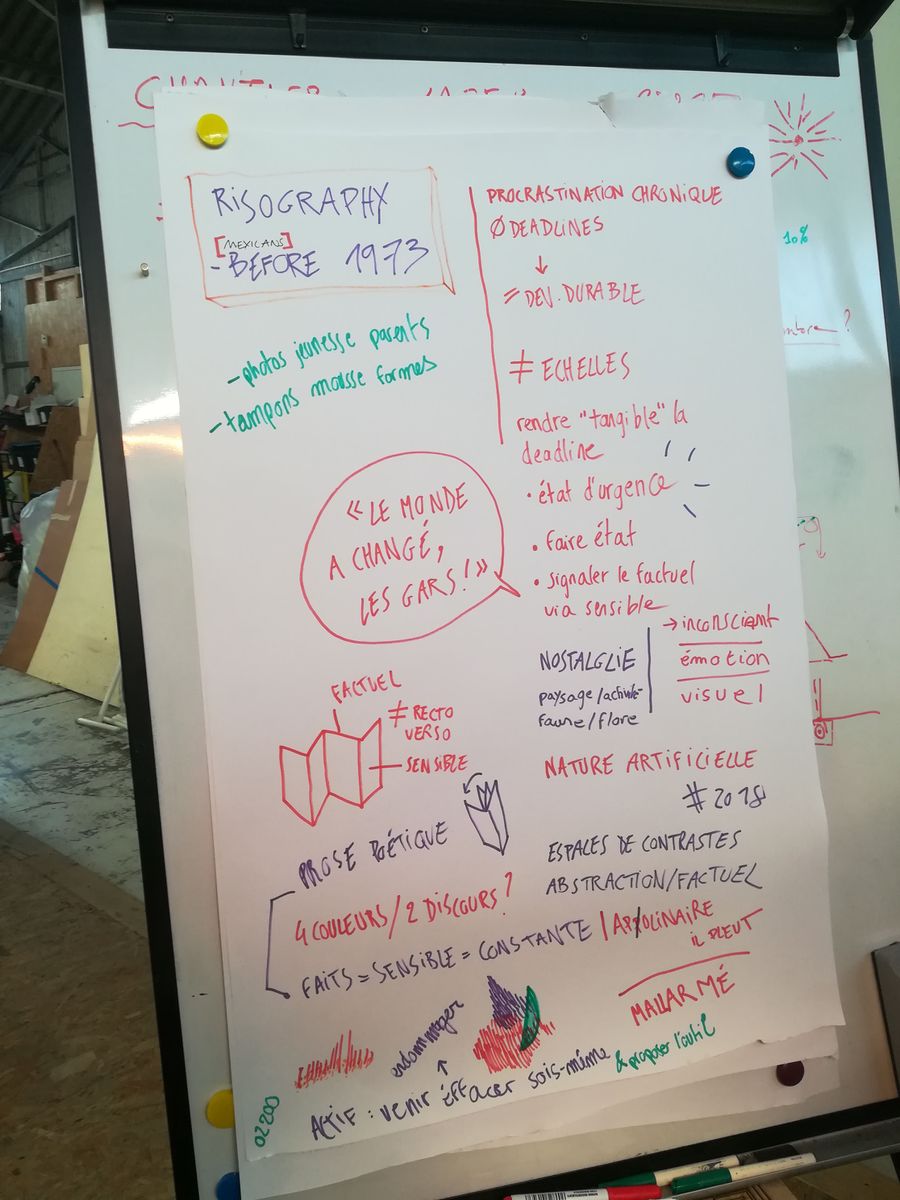 RISOGRAPHY
[MEXICANS]
- BEFORE 1973
- photos jeunesse parents
- tampons mousse formes
PROCRASTINATION CHRONIQUE
Ø DEADLINES
↓
= DEV. DURABLE
≠ ECHELLES
rendre "tangible" la
deadline
• état d'urgence
• faire état
• signaler le factuel
via sensible
« LE MONDE
A CHANGÉ,
LES GARS ! »
→ inconscient
émotion
visuel
NOSTALGLIE
paysage/activité
faune/flore
FACTUEL
≠ RECTO
VERSO
SENSIBLE
NATURE ARTIFICIELLE
# 2018
PROSE POÉTIQUE
ESPALES DE CONTRASTES
ABSTRACTION/FACTUEL
4 COULEURS / 2 DISCOURS ?
FAITS = SENSIBLE = CONSTANTE | APOLINAIRE
IL PLEUT
MALLARMÉ
endommager
↑
ACTIF : venir éffacer sois-même & proposer l'outil
00220
10%
?